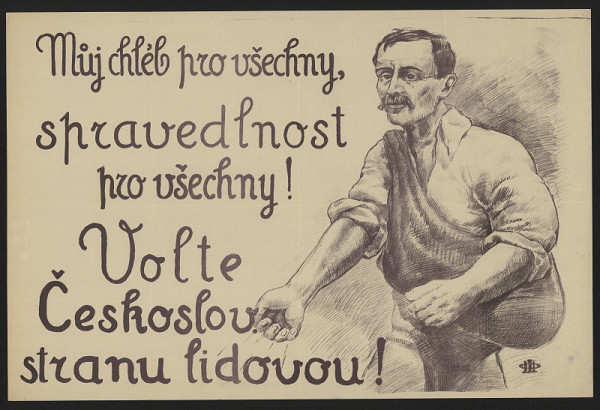 Můj chléb pro všechny,
spravedlnost
pro všechny!
Volte
Českoslov
stranu lidovou!